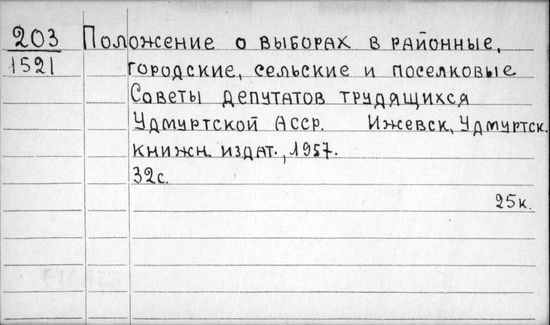 203 Положение о выборах в районные,
1521 городские, сельские и поселковые
Советы депутатов трудящихся
Удмуртской АССР. Ижевск, Удмуртск.
книжн. издат., 1957.
32с.
25к.